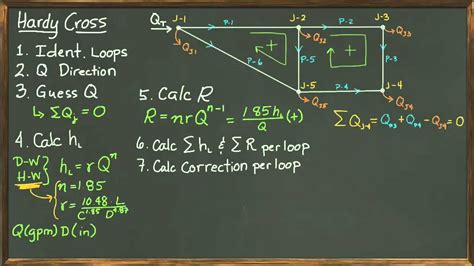 Hardy Cross
1. Ident. Loops
2. Q Direction
3. Guess Q
↳ ΣQⱼ = 0
4. Calc hL
D-W
H-W
hL = r Qⁿ
n = 1.85
r = 10.48 · L / C^1.85 D^4.87
Q(gpm) D(in)
QT
J-1
P-1
J-2
P-2
J-3
QJ1
QJ2
QJ3
P-6
P-5
P-3
+
+
J-5
P-4
J-4
QJ5
QJ4
5. Calc R
R = nrQⁿ⁻¹ = 1.85hL / Q (+)
ΣQJ-4 = QP3 + QP4 - QJ4 = 0
6. Calc ΣhL & ΣR per loop
7. Calc Correction per loop